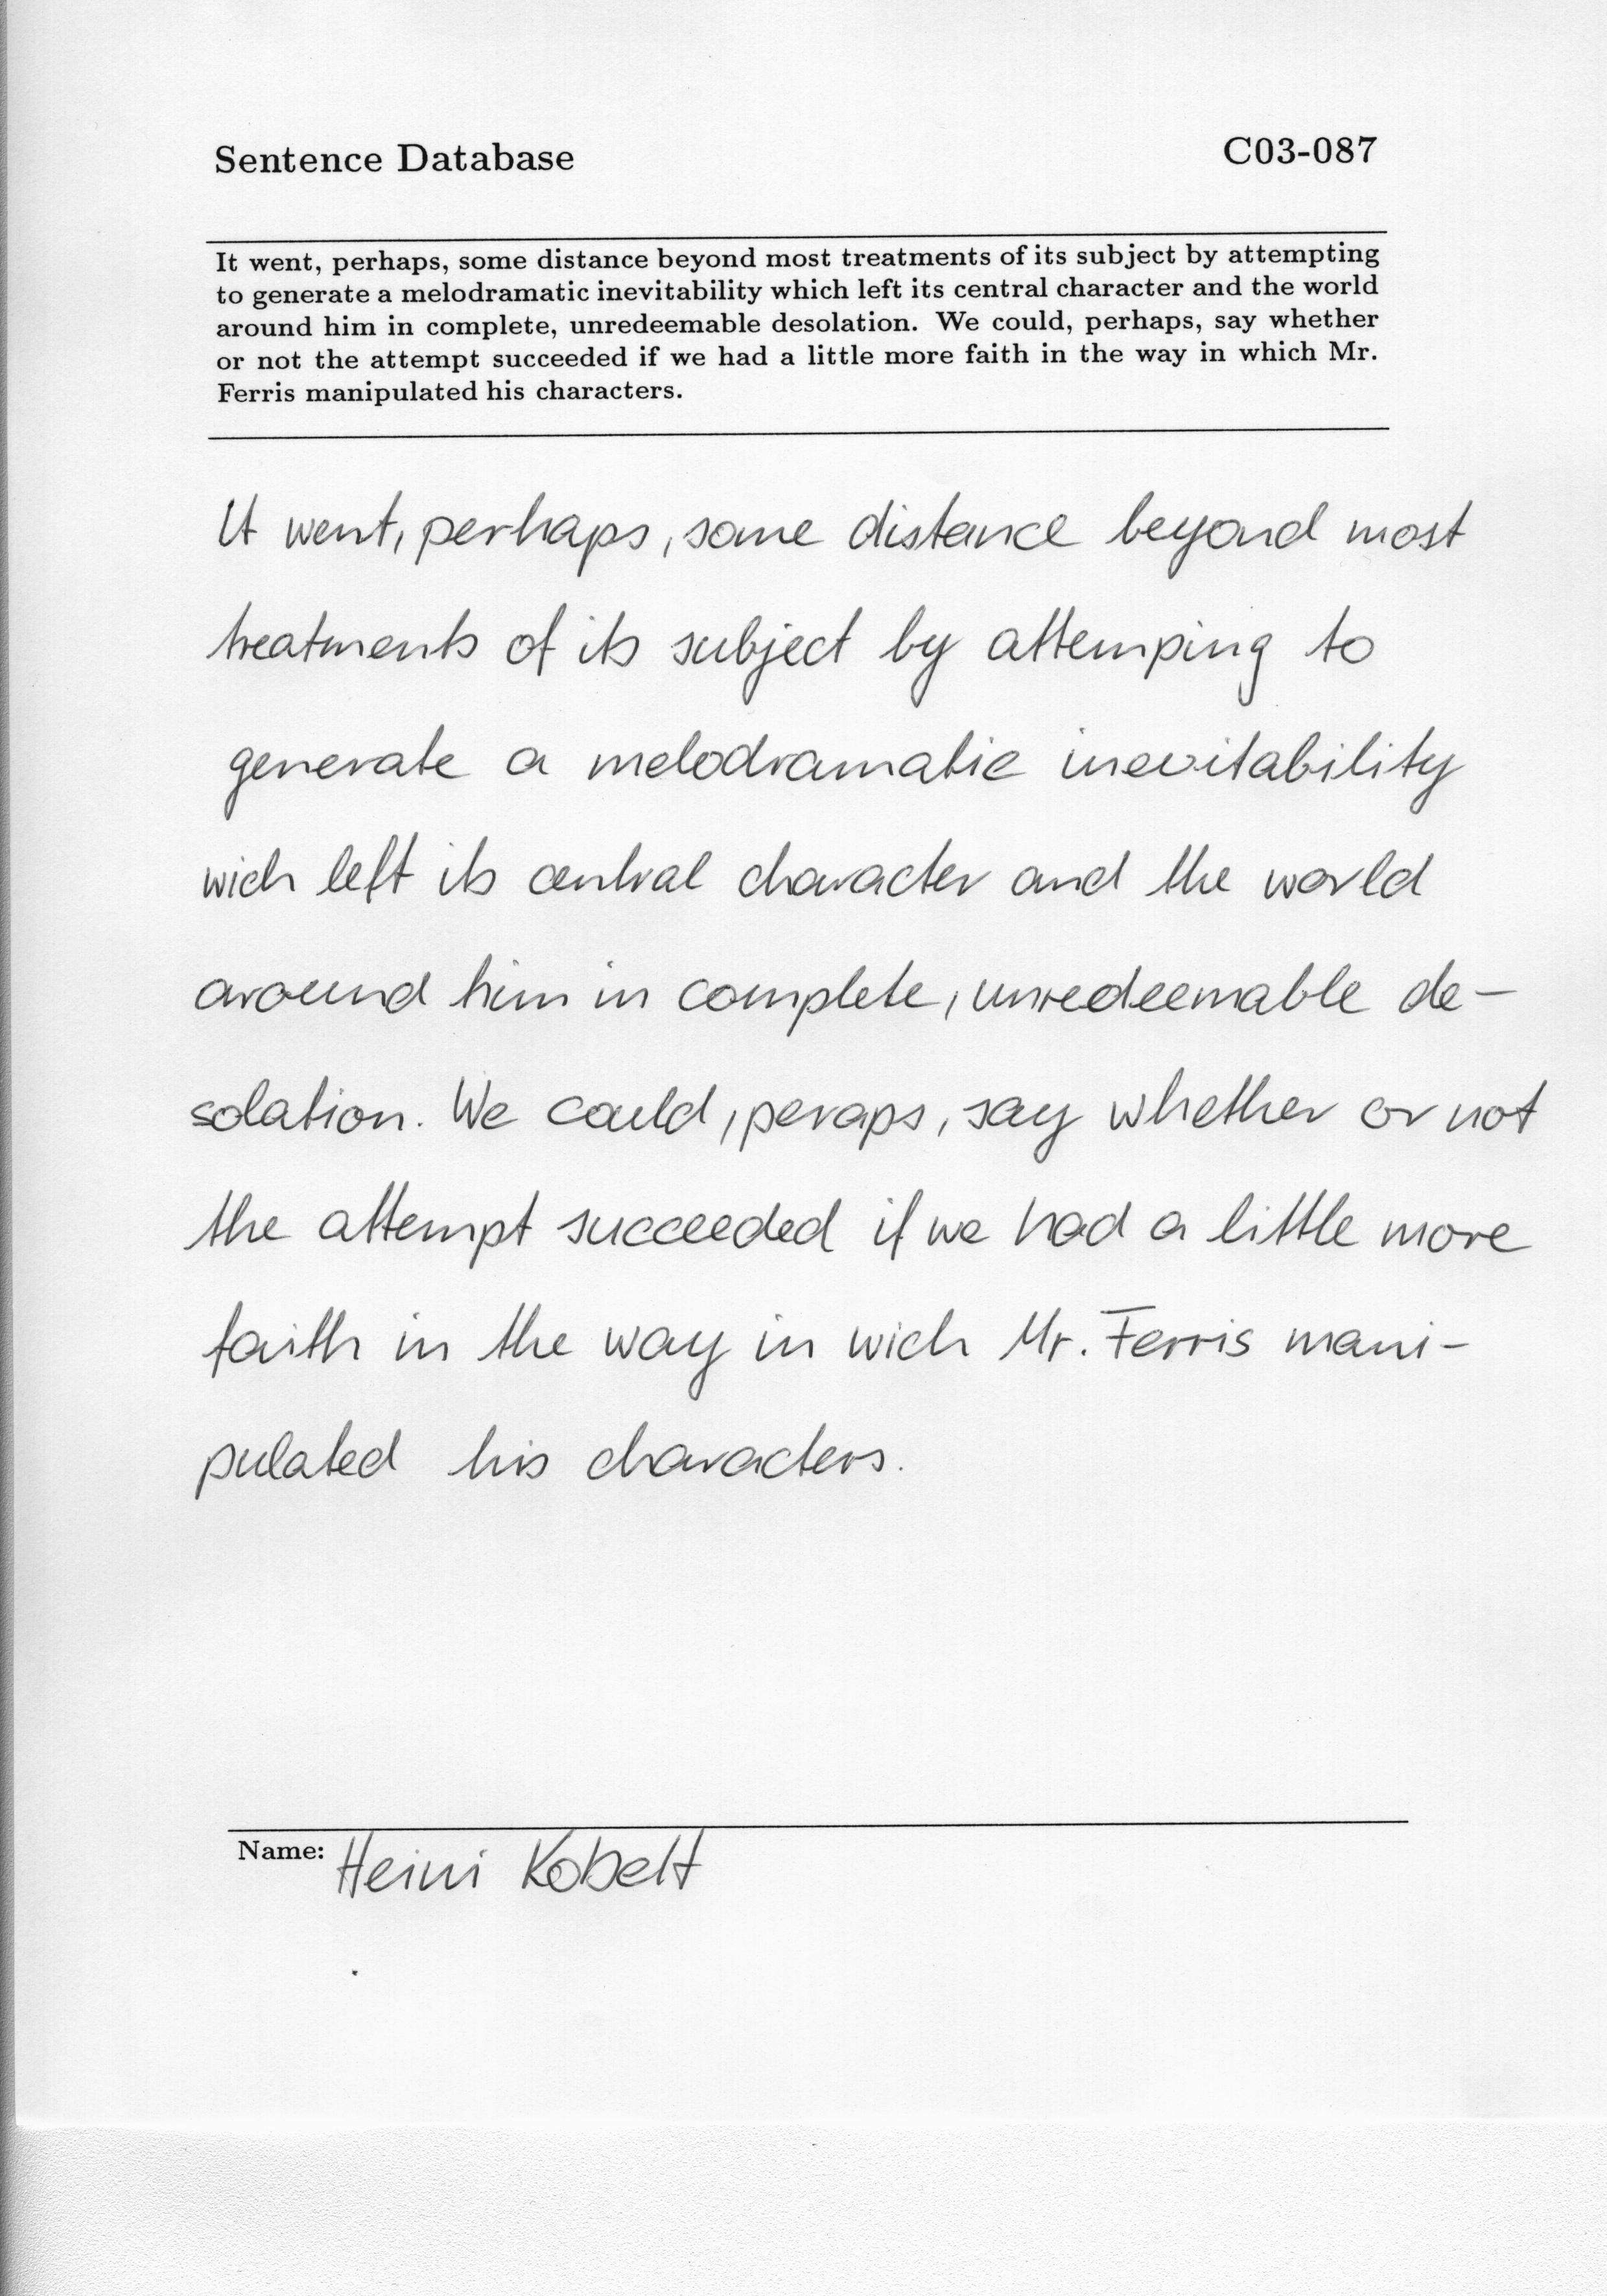 Sentence Database
C03-087
It went, perhaps, some distance beyond most treatments of its subject by attempting
to generate a melodramatic inevitability which left its central character and the world
around him in complete, unredeemable desolation. We could, perhaps, say whether
or not the attempt succeeded if we had a little more faith in the way in which Mr.
Ferris manipulated his characters.
It went, perhaps, some distance beyond most
treatments of its subject by attemping to
generate a melodramatic inevitability
wich left its central character and the world
around him in complete, unredeemable de-
solation. We could, peraps, say whether or not
the attempt succeeded if we had a little more
faith in the way in wich Mr. Ferris mani-
pulated his characters.
Name: Heini Kobelt